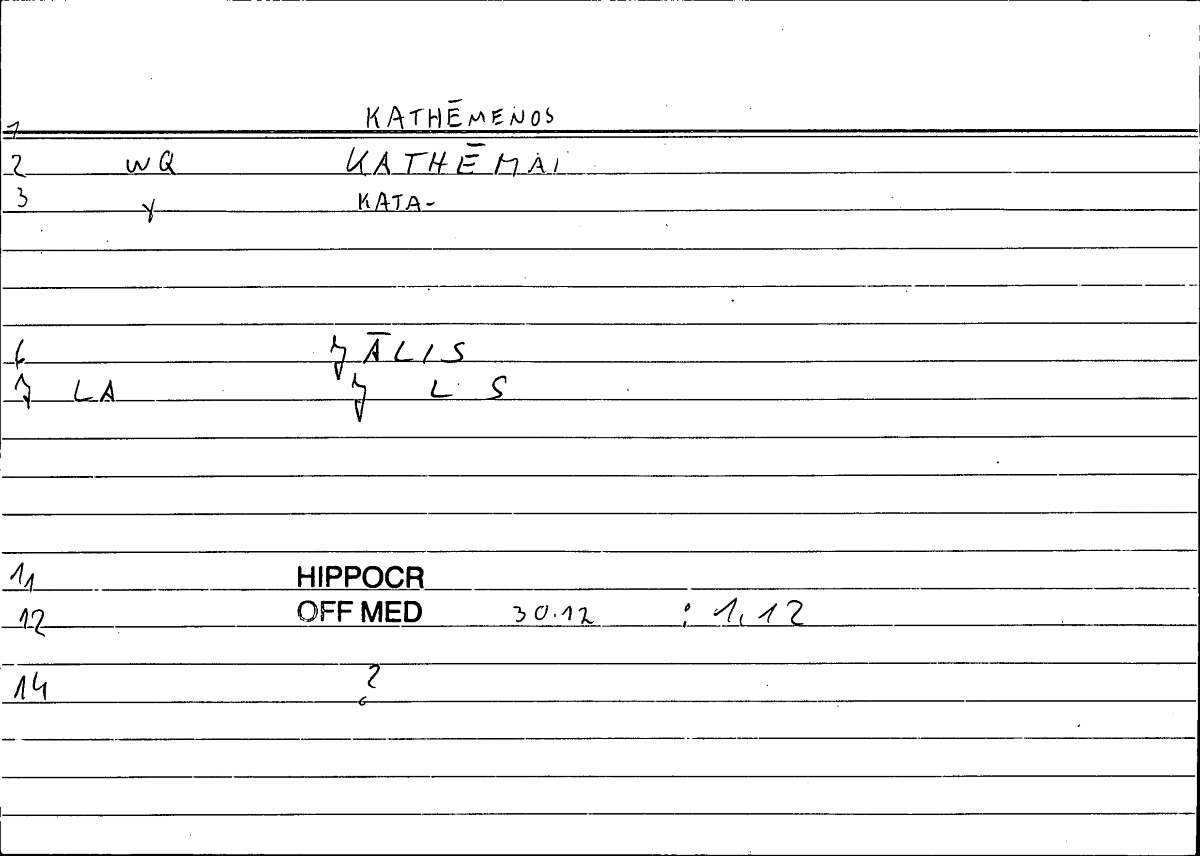 1 KATHĒMENOS
2 WQ KATHĒMAI
3 Y KATA-
6 ĀLIS
LA L S
11 HIPPOCR
12 OFF MED 30.12 : 1,12
14 ?